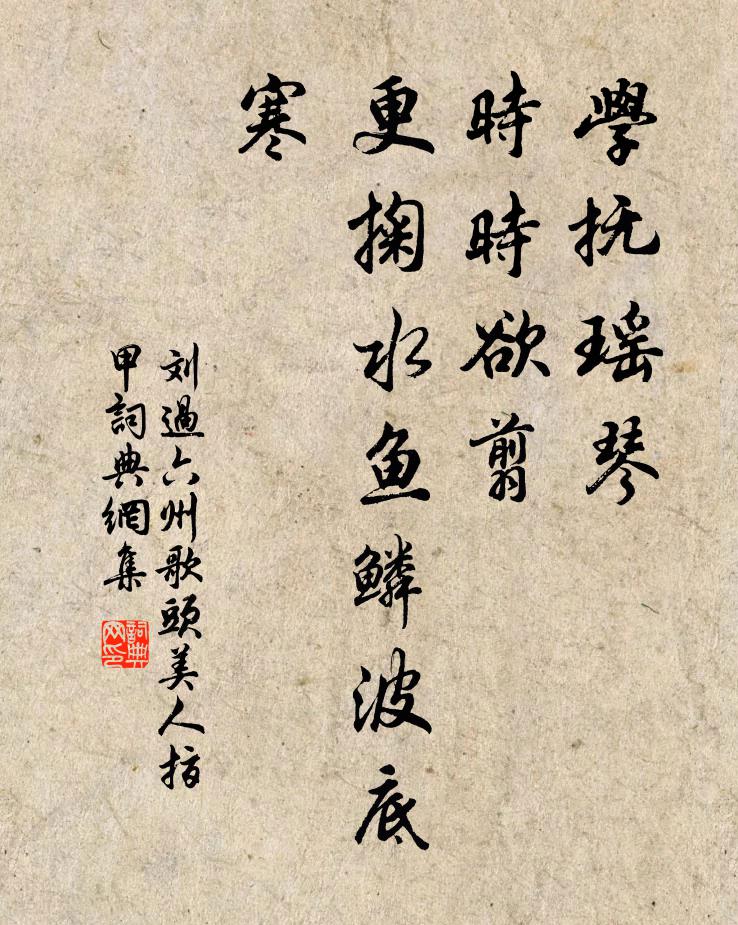 學抚瑶琴
時時欲翦
更掬水鱼鳞波底
寒
刘過六州歌頭美人指
甲詞典網集
詞典
网印